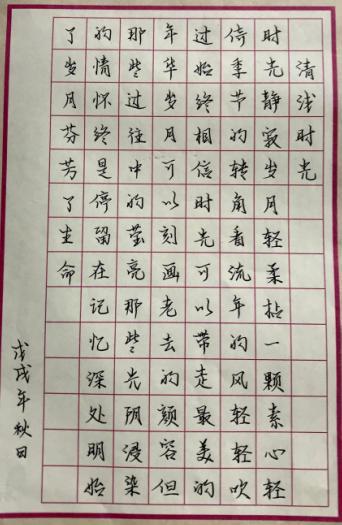 清浅时光
时光静寂岁月轻柔拈一颗素心轻
倚季节的转角看流年的风轻轻吹
过始终相信时光可以带走最美的
年华岁月可以刻画老去的颜容但
那些过往中的莹亮那些光阴浸染
的情怀终是停留在记忆深处明媚
了岁月芬芳了生命
戊戌年秋日